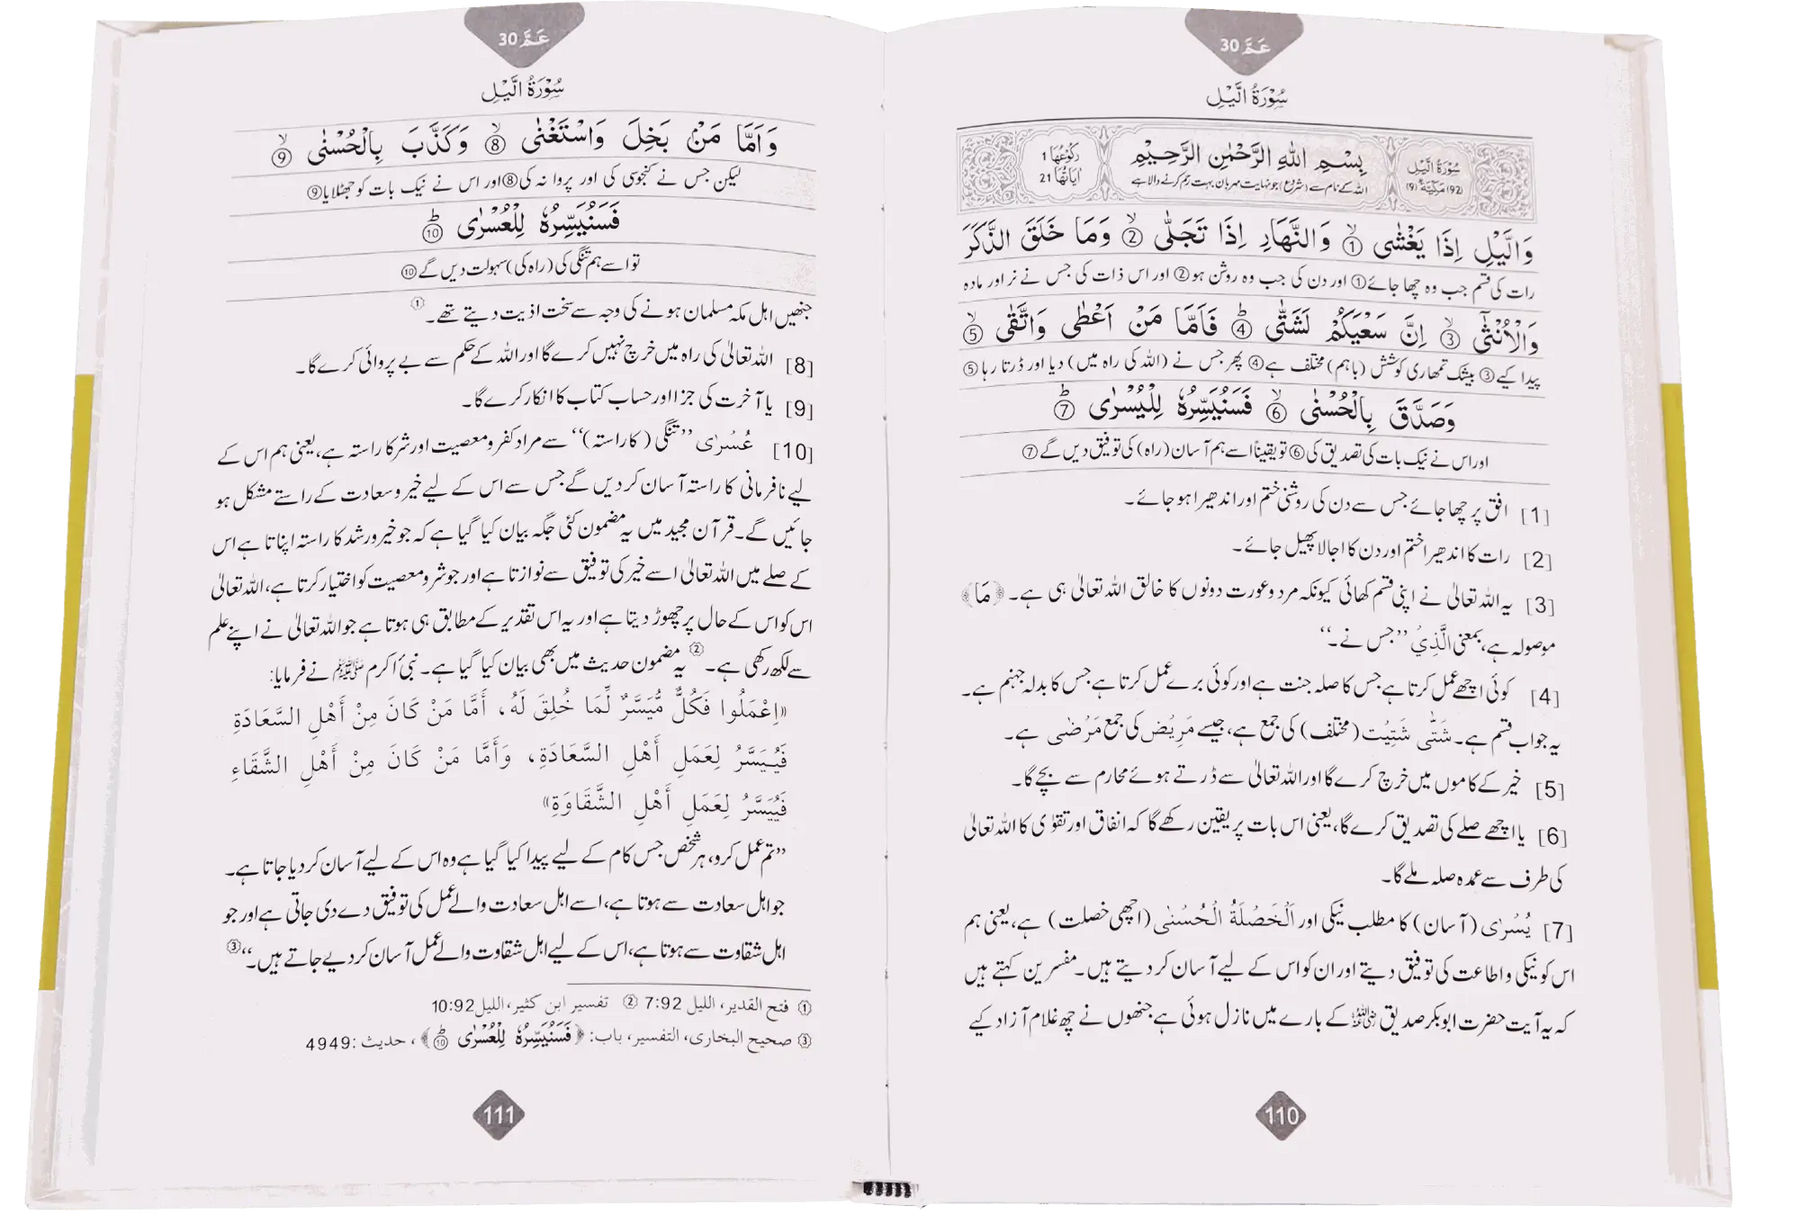 عَمَّ 30
سُوْرَةُ الَّيْلِ
سُوْرَةُ الَّيْلِ
(92) مَكِّيَّةٌ (9)
بِسْمِ اللهِ الرَّحْمٰنِ الرَّحِيْمِ
اللہ کے نام سے (شروع) جو نہایت مہربان بہت رحم کرنے والا ہے
رُكُوْعُهَا 1
اٰيَاتُهَا 21
وَالَّيْلِ اِذَا يَغْشٰى ① وَالنَّهَارِ اِذَا تَجَلّٰى ② وَمَا خَلَقَ الذَّكَرَ
رات کی قسم جب وہ چھا جائے① اور دن کی جب وہ روشن ہو② اور اس ذات کی جس نے نر اور مادہ
وَالْاُنْثٰٓى ③ اِنَّ سَعْيَكُمْ لَشَتّٰى ④ فَاَمَّا مَنْ اَعْطٰى وَاتَّقٰى ⑤
پیدا کیے③ بیشک تمھاری کوشش (باہم) مختلف ہے④ پھر جس نے (اللہ کی راہ میں) دیا اور ڈرتا رہا⑤
وَصَدَّقَ بِالْحُسْنٰى ⑥ فَسَنُيَسِّرُهٗ لِلْيُسْرٰى ⑦
اور اس نے نیک بات کی تصدیق کی⑥ تو یقیناً اسے ہم آسان (راہ) کی توفیق دیں گے⑦
[1] افق پر چھا جائے جس سے دن کی روشنی ختم اور اندھیرا ہو جائے۔
[2] رات کا اندھیرا ختم اور دن کا اجالا پھیل جائے۔
[3] یہ اللہ تعالیٰ نے اپنی قسم کھائی کیونکہ مرد و عورت دونوں کا خالق اللہ تعالیٰ ہی ہے۔ ﴿مَا﴾
موصولہ ہے، بمعنی الَّذِيْ ’’جس نے۔‘‘
[4] کوئی اچھے عمل کرتا ہے جس کا صلہ جنت ہے اور کوئی برے عمل کرتا ہے جس کا بدلہ جہنم ہے۔
یہ جواب قسم ہے۔ شَتّٰى شَتِيْت (مختلف) کی جمع ہے، جیسے مَرِيْض کی جمع مَرْضٰى ہے۔
[5] خیر کے کاموں میں خرچ کرے گا اور اللہ تعالیٰ سے ڈرتے ہوئے محارم سے بچے گا۔
[6] یا اچھے صلے کی تصدیق کرے گا، یعنی اس بات پر یقین رکھے گا کہ انفاق اور تقوٰی کا اللہ تعالیٰ
کی طرف سے عمدہ صلہ ملے گا۔
[7] يُسْرٰى (آسان) کا مطلب نیکی اور اَلْخَصْلَةُ الْحُسْنٰى (اچھی خصلت) ہے، یعنی ہم
اس کو نیکی و اطاعت کی توفیق دیتے اور ان کو اس کے لیے آسان کر دیتے ہیں۔ مفسرین کہتے ہیں
کہ یہ آیت حضرت ابوبکر صدیق رضی اللہ عنہ کے بارے میں نازل ہوئی ہے جنھوں نے چھ غلام آزاد کیے
110
عَمَّ 30
سُوْرَةُ الَّيْلِ
وَاَمَّا مَنْۢ بَخِلَ وَاسْتَغْنٰى ⑧ وَكَذَّبَ بِالْحُسْنٰى ⑨
لیکن جس نے کنجوسی کی اور پروا نہ کی⑧ اور اس نے نیک بات کو جھٹلایا⑨
فَسَنُيَسِّرُهٗ لِلْعُسْرٰى ⑩
تو اسے ہم تنگی کی (راہ کی) سہولت دیں گے⑩
جنھیں اہل مکہ مسلمان ہونے کی وجہ سے سخت اذیت دیتے تھے۔①
[8] اللہ تعالیٰ کی راہ میں خرچ نہیں کرے گا اور اللہ کے حکم سے بے پروائی کرے گا۔
[9] یا آخرت کی جزا اور حساب کتاب کا انکار کرے گا۔
[10] عُسْرٰى ’’تنگی (کا راستہ)‘‘ سے مراد کفر و معصیت اور شر کا راستہ ہے، یعنی ہم اس کے
لیے نافرمانی کا راستہ آسان کر دیں گے جس سے اس کے لیے خیر و سعادت کے راستے مشکل ہو
جائیں گے۔ قرآن مجید میں یہ مضمون کئی جگہ بیان کیا گیا ہے کہ جو خیر و رشد کا راستہ اپناتا ہے اس
کے صلے میں اللہ تعالیٰ اسے خیر کی توفیق سے نوازتا ہے اور جو شر و معصیت کو اختیار کرتا ہے، اللہ تعالیٰ
اس کو اس کے حال پر چھوڑ دیتا ہے اور یہ اس تقدیر کے مطابق ہی ہوتا ہے جو اللہ تعالیٰ نے اپنے علم
سے لکھ رکھی ہے۔② یہ مضمون حدیث میں بھی بیان کیا گیا ہے۔ نبیٔ اکرم ﷺ نے فرمایا:
«اِعْمَلُوا فَكُلٌّ مُّيَسَّرٌ لِّمَا خُلِقَ لَهُ، أَمَّا مَنْ كَانَ مِنْ أَهْلِ السَّعَادَةِ
فَيُيَسَّرُ لِعَمَلِ أَهْلِ السَّعَادَةِ، وَأَمَّا مَنْ كَانَ مِنْ أَهْلِ الشَّقَاءِ
فَيُيَسَّرُ لِعَمَلِ أَهْلِ الشَّقَاوَةِ»
’’تم عمل کرو، ہر شخص جس کام کے لیے پیدا کیا گیا ہے وہ اس کے لیے آسان کر دیا جاتا ہے۔
جو اہل سعادت سے ہوتا ہے، اسے اہل سعادت والے عمل کی توفیق دے دی جاتی ہے اور جو
اہل شقاوت سے ہوتا ہے، اس کے لیے اہل شقاوت والے عمل آسان کر دیے جاتے ہیں۔‘‘③
① فتح القدير، الليل 7:92 ② تفسير ابن كثير، الليل 10:92
③ صحيح البخاري، التفسير، باب: ﴿فَسَنُيَسِّرُهٗ لِلْعُسْرٰى ⑩﴾، حديث: 4949
111